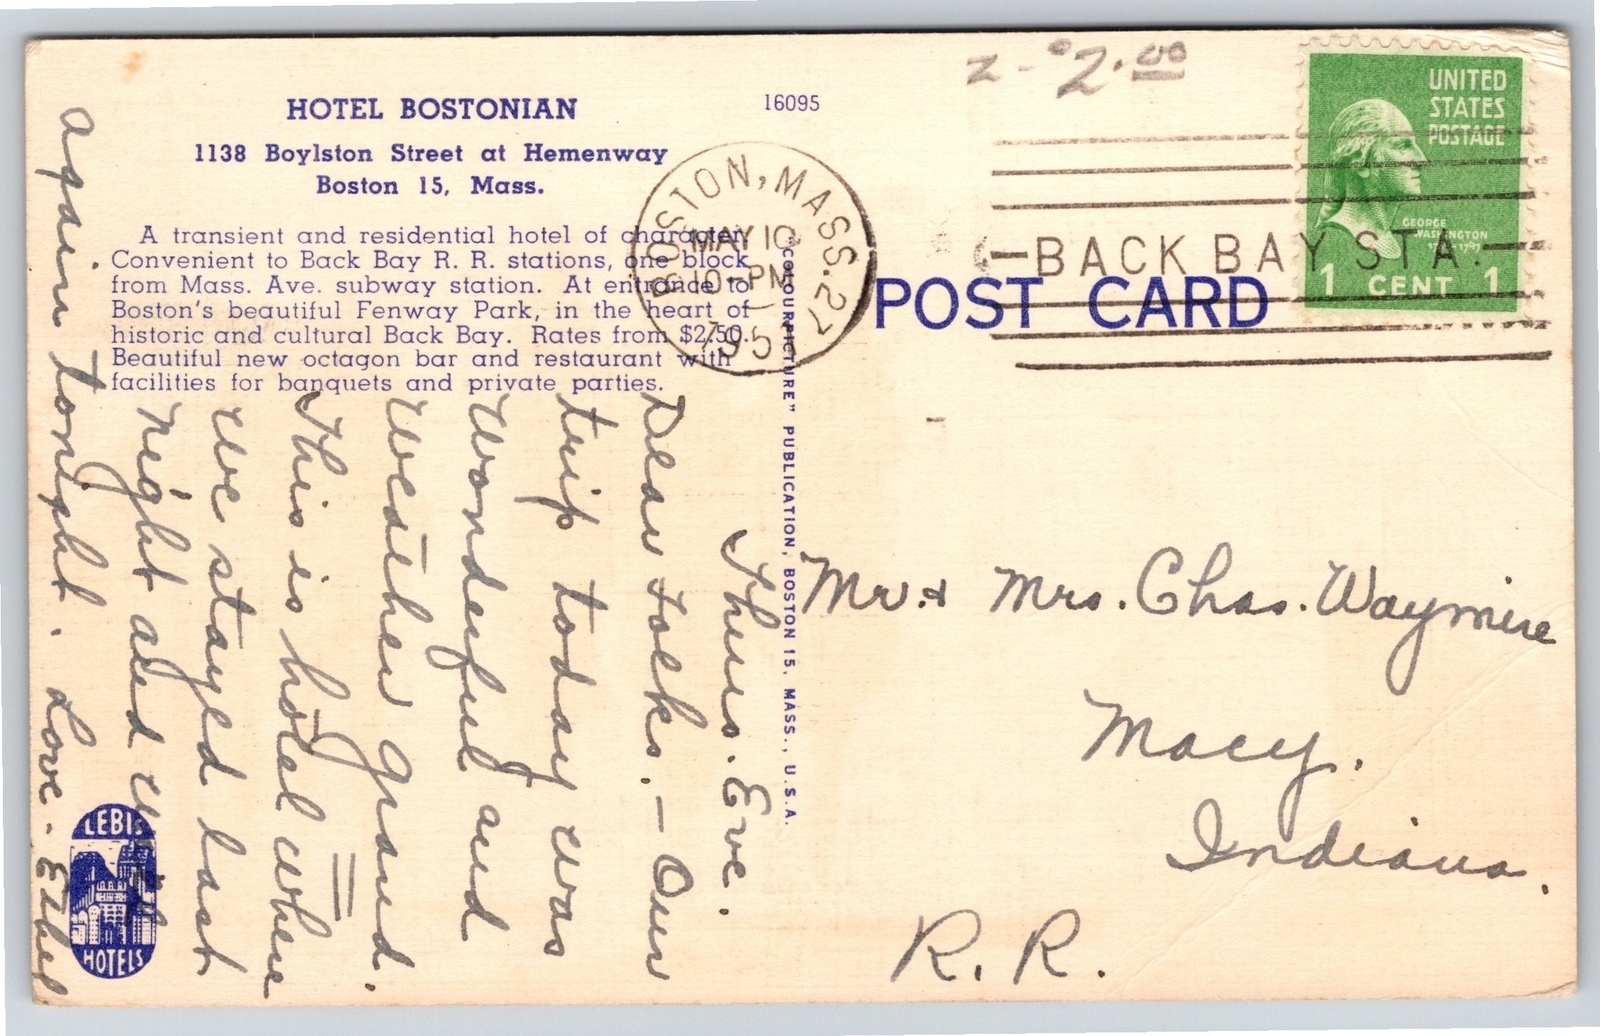 z - $2.00
HOTEL BOSTONIAN
16095
1138 Boylston Street at Hemenway
Boston 15, Mass.
A transient and residential hotel of character.
Convenient to Back Bay R. R. stations, one block
from Mass. Ave. subway station. At entrance to
Boston's beautiful Fenway Park, in the heart of
historic and cultural Back Bay. Rates from $2.50.
Beautiful new octagon bar and restaurant with
facilities for banquets and private parties.
BOSTON, MASS. 27
MAY 10
10 - PM
195
—BACK BAY STA.—
UNITED
STATES
POSTAGE
GEORGE
WASHINGTON
1 CENT 1
POST CARD
"COLOURPICTURE" PUBLICATION, BOSTON 15, MASS., U.S.A.
Thurs. Eve.
Dear Folks. — Our
trip today was
Wonderful and
Weather grand.
This is hotel where
we stayed last
night and
again tonight. Love - Ethel
Mr. & Mrs. Chas. Waymire
Macy.
Indiana.
R. R.
LEBIS
HOTELS